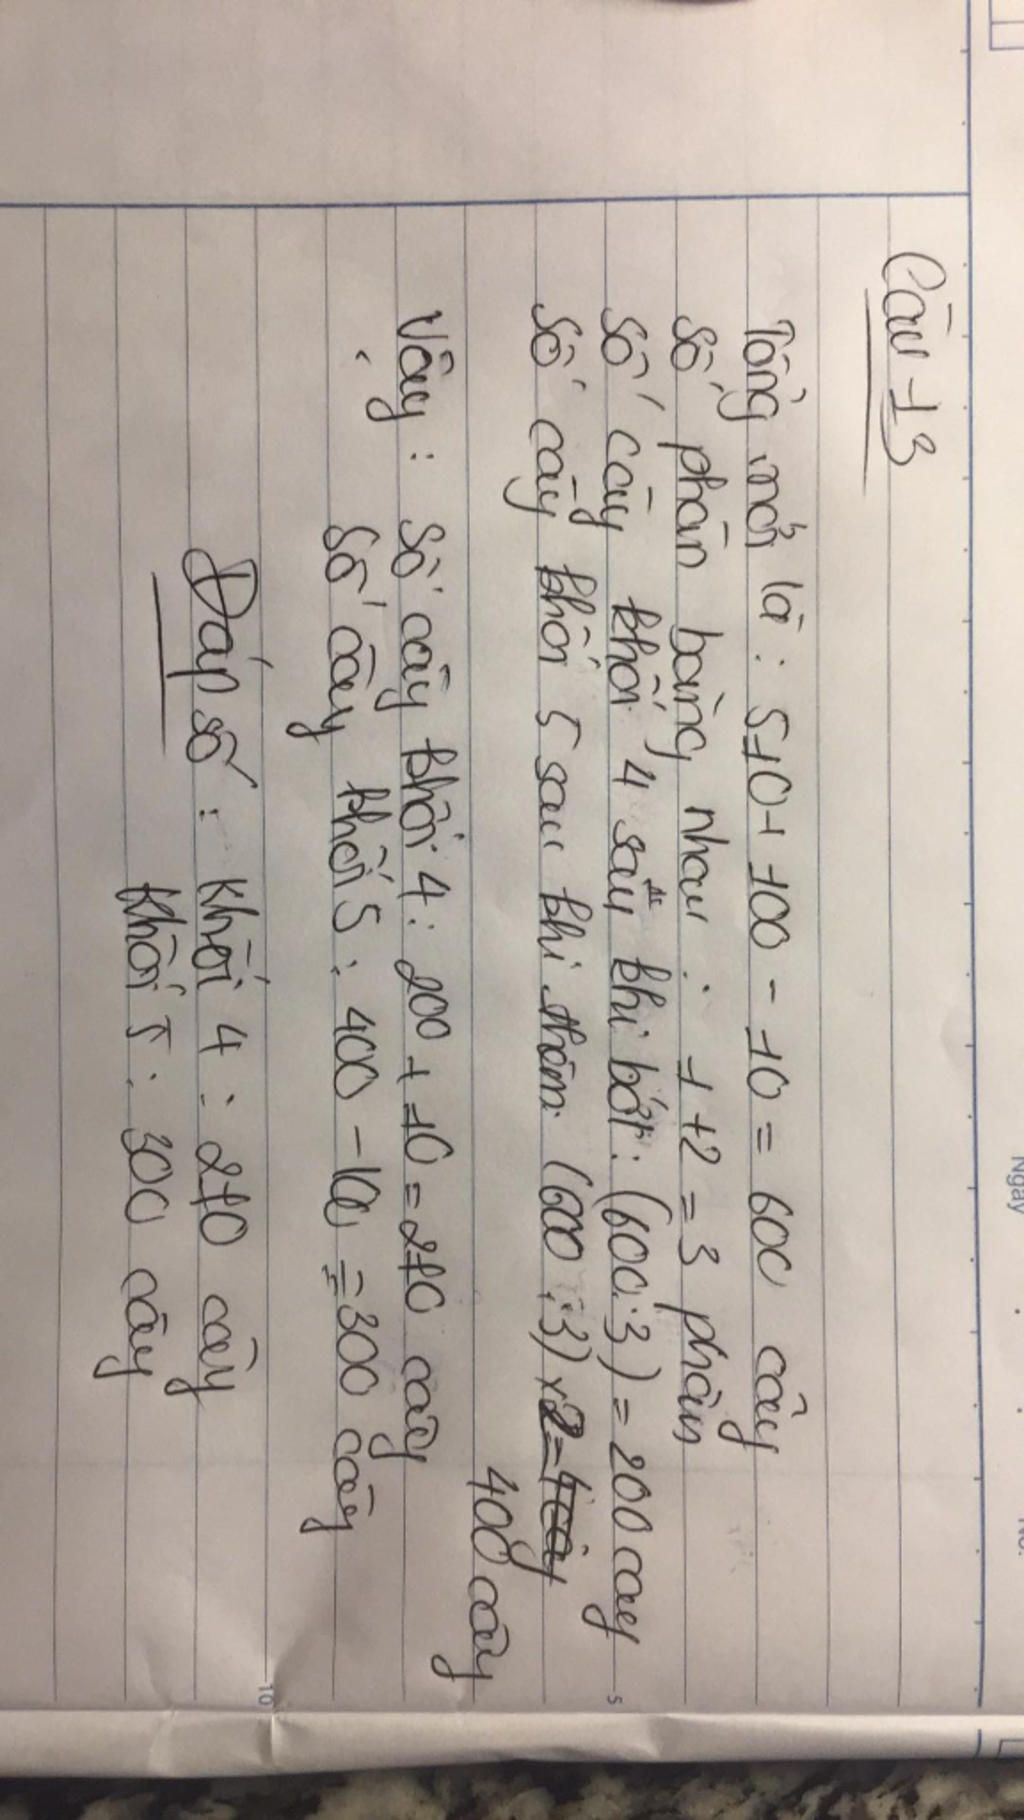 Câu 13
Tổng mới là : 510 + 100 - 10 = 600 cây
Số phần bằng nhau : 1 + 2 = 3 phần
Số cây khối 4 sau khi bớt : (600 : 3) = 200 cây
Số cây khối 5 sau khi thêm : (600 : 3) x 2 =
400 cây
Vậy : Số cây khối 4 : 200 + 10 = 210 cây
Số cây khối 5 : 400 - 100 = 300 cây
Đáp số : Khối 4 : 210 cây
Khối 5 : 300 cây
Ngày
No.
5
10